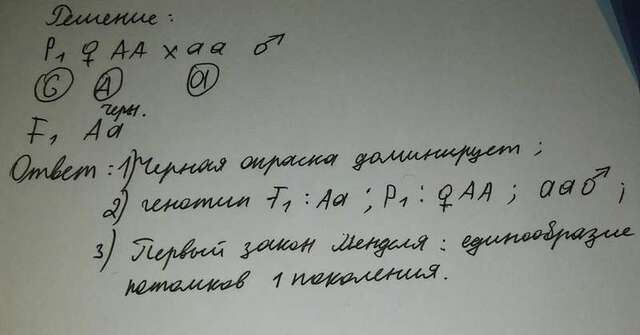 Решение:
P₁ ♀ AA x aa ♂
G A a
черн.
F₁ Aa
Ответ: 1) Черная окраска доминирует;
2) генотип F₁: Aa; P₁: ♀ AA; aa ♂;
3) Первый закон Менделя: единообразие
потомков 1 поколения.